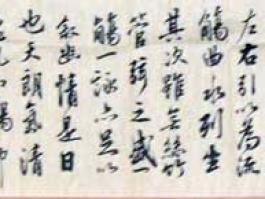 左右引以為流
觴曲水列坐
其次雖無絲竹
管絃之盛一
觴一詠亦足以
叙幽情是日
也天朗氣清